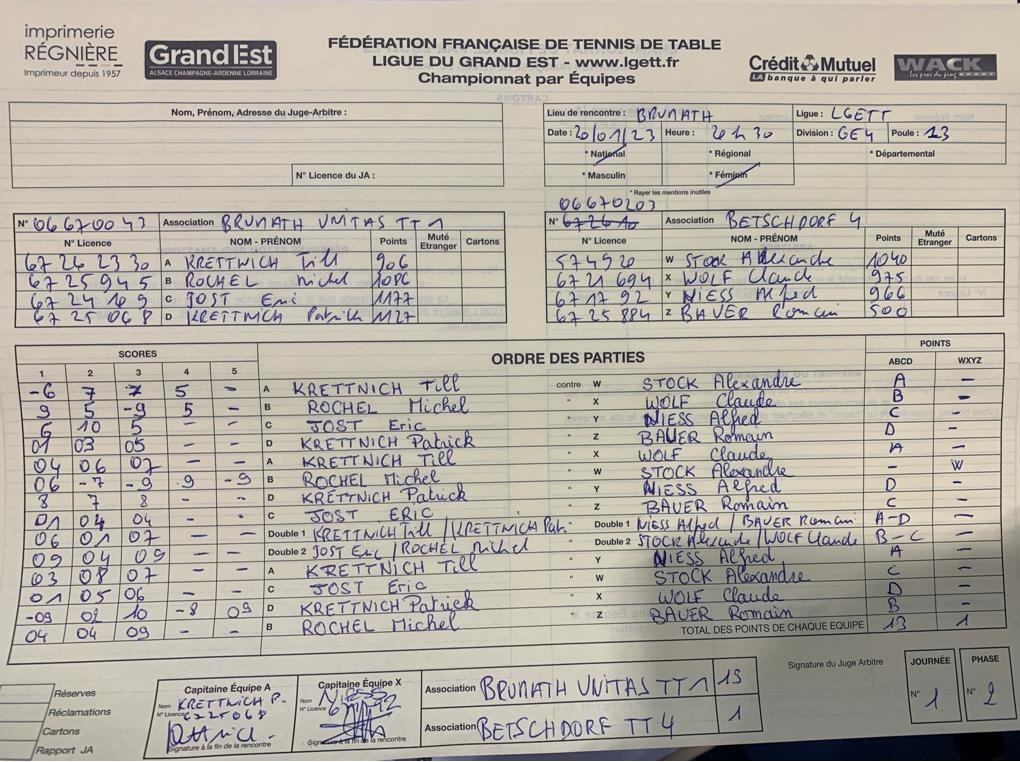 imprimerie
RÉGNIÈRE
Imprimeur depuis 1957
GrandEst
ALSACE CHAMPAGNE-ARDENNE LORRAINE
FÉDÉRATION FRANÇAISE DE TENNIS DE TABLE
LIGUE DU GRAND EST - www.lgett.fr
Championnat par Équipes
Crédit Mutuel
LA banque à qui parler
WACK
Nom, Prénom, Adresse du Juge-Arbitre :
N° Licence du JA :
Lieu de rencontre : BRUMATH Ligue : LGETT
Date : 20/01/23 Heure : 20h30 Division : GE4 Poule : 13
* National * Régional * Départemental
* Masculin * Féminin
* Rayer les mentions inutiles
06670203
N° 06670043 Association BRUMATH UNITAS TT 1
N° Licence NOM - PRÉNOM Points Muté Etranger Cartons
67262330 A KRETTNICH Till 906
6725945 B ROCHEL Michel 1086
6724169 C JOST Eric 1177
6725068 D KRETTNICH Patrick 1127
N° 672610 Association BETSCHDORF 4
N° Licence NOM - PRÉNOM Points Muté Etranger Cartons
574920 W STOCK Alexandre 1040
6721694 X WOLF Claude 975
671792 Y NIESS Alfred 966
6725884 Z BAUER Romain 500
SCORES ORDRE DES PARTIES POINTS
1 2 3 4 5 ABCD WXYZ
-6 7 7 5 - A KRETTNICH Till contre W STOCK Alexandre A -
9 5 -9 5 - B ROCHEL Michel " X WOLF Claude B -
5 10 5 C JOST Eric " Y NIESS Alfred C -
09 03 05 D KRETTNICH Patrick " Z BAUER Romain D -
04 06 07 - - A KRETTNICH Till " X WOLF Claude A -
06 -7 -9 9 -9 B ROCHEL Michel " W STOCK Alexandre - W
8 7 8 - - D KRETTNICH Patrick " Y NIESS Alfred D -
01 04 04 - - C JOST ERIC " Z BAUER Romain C -
06 01 07 - - Double 1 KRETTNICH Till / KRETTNICH Patr. " Double 1 NIESS Alfred / BAUER Romain A-D -
09 04 09 - - Double 2 JOST Eric / ROCHEL Michel " Double 2 STOCK Alexandre / WOLF Claude B-C -
03 08 07 - - A KRETTNICH Till " Y NIESS Alfred A -
01 05 06 - - C JOST Eric " W STOCK Alexandre C -
-09 02 10 -8 09 D KRETTNICH Patrick " X WOLF Claude D -
04 04 09 - - B ROCHEL Michel " Z BAUER Romain B -
TOTAL DES POINTS DE CHAQUE EQUIPE 13 1
Réserves
Réclamations
Cartons
Rapport JA
Capitaine Équipe A
Nom KRETTNICH P.
N° Licence 6725068
Signature à la fin de la rencontre
Capitaine Équipe X
Nom NIESS
N° Licence
Signature à la fin de la rencontre
Association BRUMATH UNITAS TT 1 13
Association BETSCHDORF TT 4 1
Signature du Juge Arbitre
JOURNÉE
N° 1
PHASE
N° 2